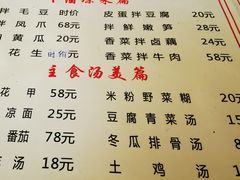 拌毛豆 时价 皮蛋拌豆腐 20元
拌凤爪 68元 拌鲜嫩笋 28元
花生 时价 香菜拌卤藕 24元
香菜拌牛肉 58元
主食汤羹篇
花甲 58元 米粉野菜糊 20元
凉面 25元 豆腐青菜汤 15元
番茄 78元 冬瓜排骨汤
汤 18元 土鸡汤